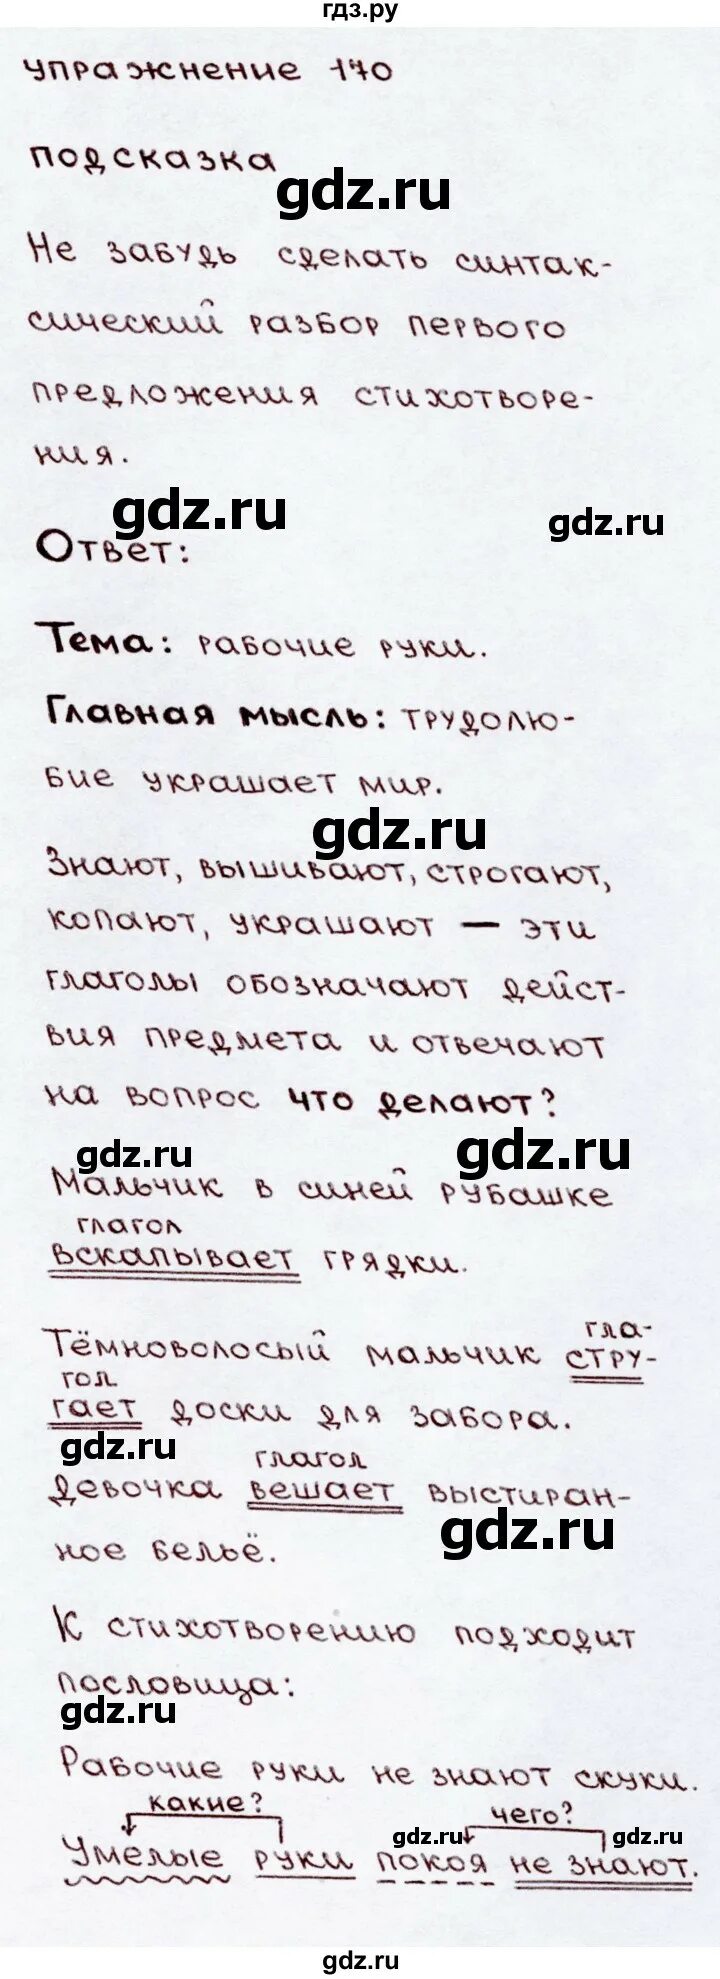 гдз.ру
Упражнение 170
подсказка
gdz.ru
Не забудь сделать синтак-
сический разбор первого
предложения стихотворе-
ния.
gdz.ru
gdz.ru
Ответ:
Тема: рабочие руки.
Главная мысль: трудолю-
бие украшает мир.
gdz.ru
Знают, вышивают, строгают,
копают, украшают — эти
глаголы обозначают дейст-
вия предмета и отвечают
на вопрос что делают?
gdz.ru
gdz.ru
Мальчик в синей рубашке
глагол
вскапывает грядки.
гла-
Тёмноволосый мальчик стру-
гол
гает доски для забора.
gdz.ru
глагол
Девочка вешает выстиран-
gdz.ru
ное бельё.
К стихотворению подходит
пословица:
gdz.ru
Рабочие руки не знают скуки.
какие?
чего?
gdz.ru
gdz.ru
Умелые руки покоя не знают.
gdz.ru